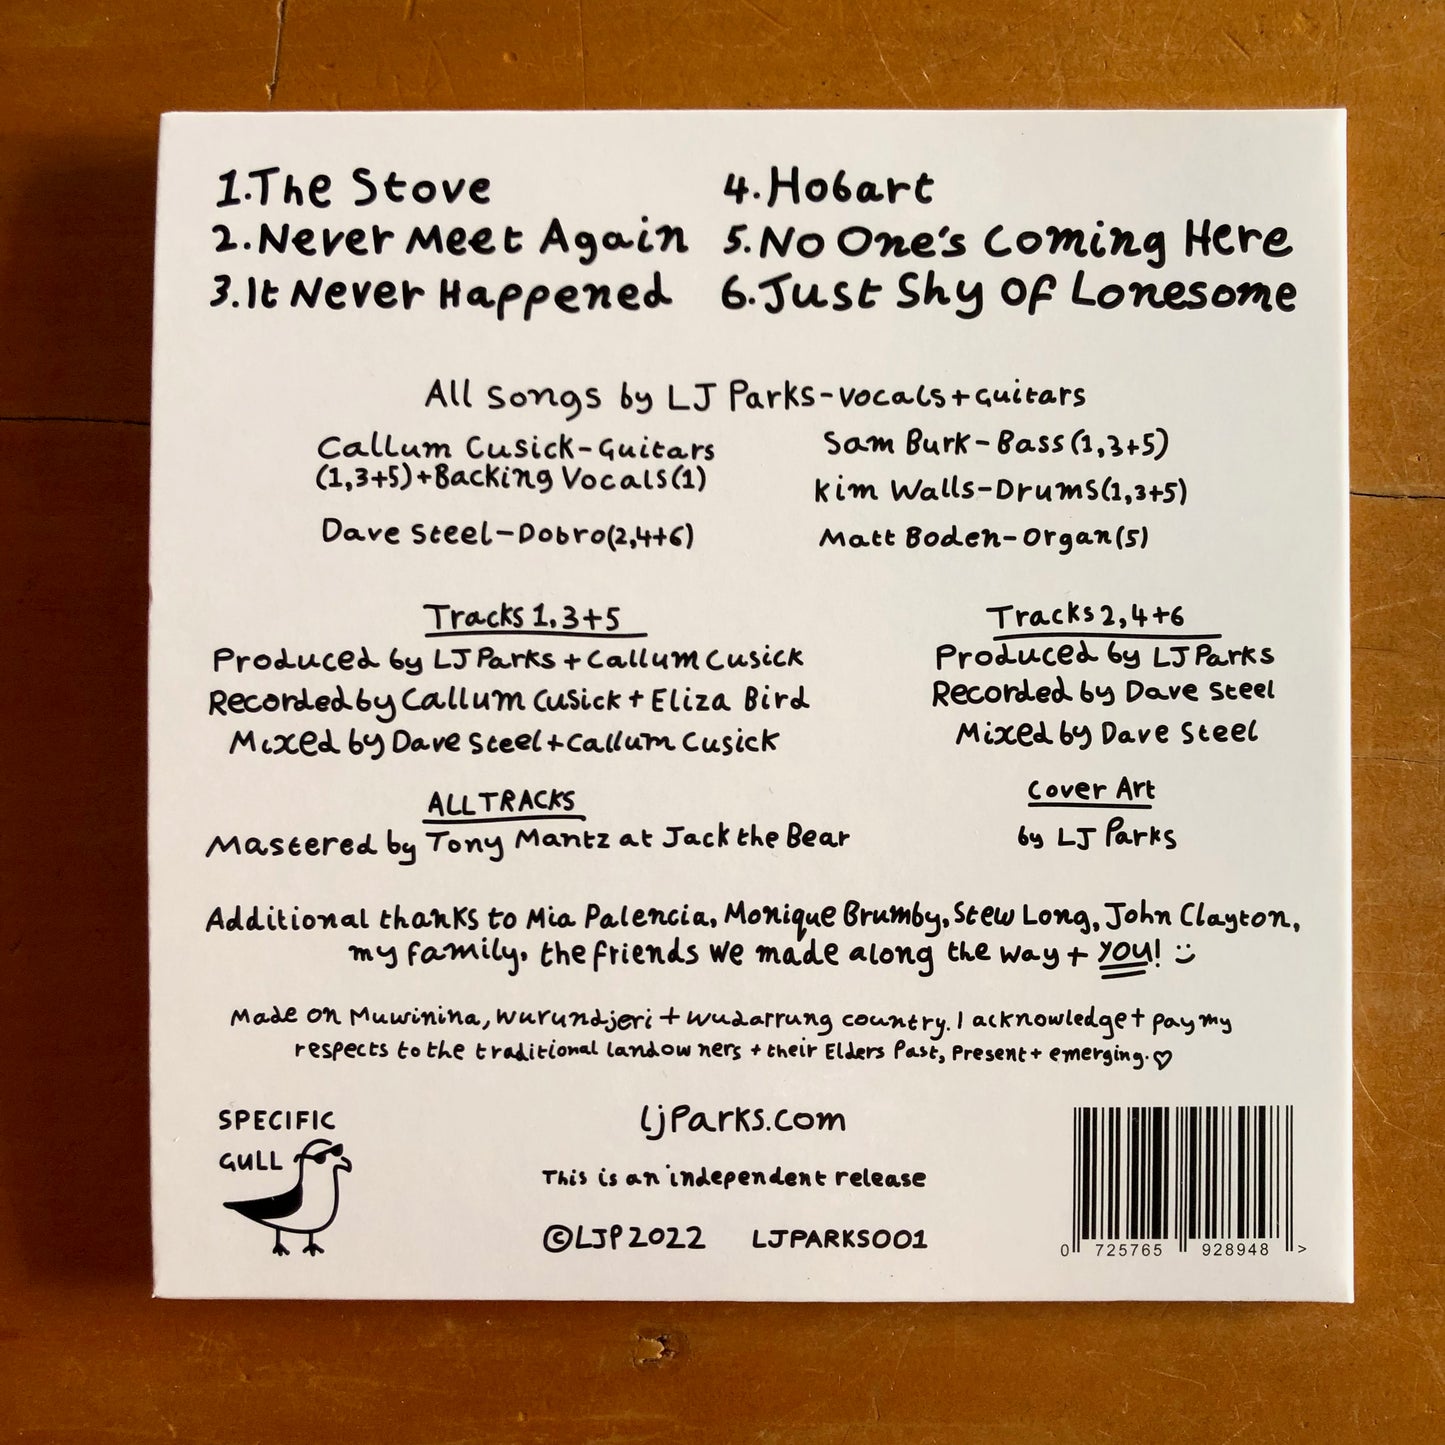 1.The Stove
2.Never Meet Again
3.It Never Happened
4.Hobart
5.No One's Coming Here
6.Just Shy Of Lonesome
All Songs by LJ Parks-Vocals+Guitars
Callum Cusick-Guitars
(1,3+5)+Backing Vocals(1)
Dave Steel-Dobro(2,4+6)
Sam Burk-Bass(1,3+5)
Kim Walls-Drums(1,3+5)
Matt Boden-Organ(5)
Tracks 1,3+5
Produced by LJ Parks + Callum Cusick
Recorded by Callum Cusick + Eliza Bird
Mixed by Dave Steel + Callum Cusick
Tracks 2,4+6
Produced by LJ Parks
Recorded by Dave Steel
Mixed by Dave Steel
ALL TRACKS
Mastered by Tony Mantz at Jack the Bear
Cover Art
by LJ Parks
Additional thanks to Mia Palencia, Monique Brumby, Stew Long, John Clayton,
my family, the friends we made along the way + YOU! :)
Made on Muwinina, Wurundjeri + Wudarrung country. I acknowledge + pay my
respects to the traditional landowners + their Elders Past, Present + emerging.♡
SPECIFIC
GULL
ljParks.com
This is an independent release
©LJP 2022 LJPARKS001
0 725765 928948 >